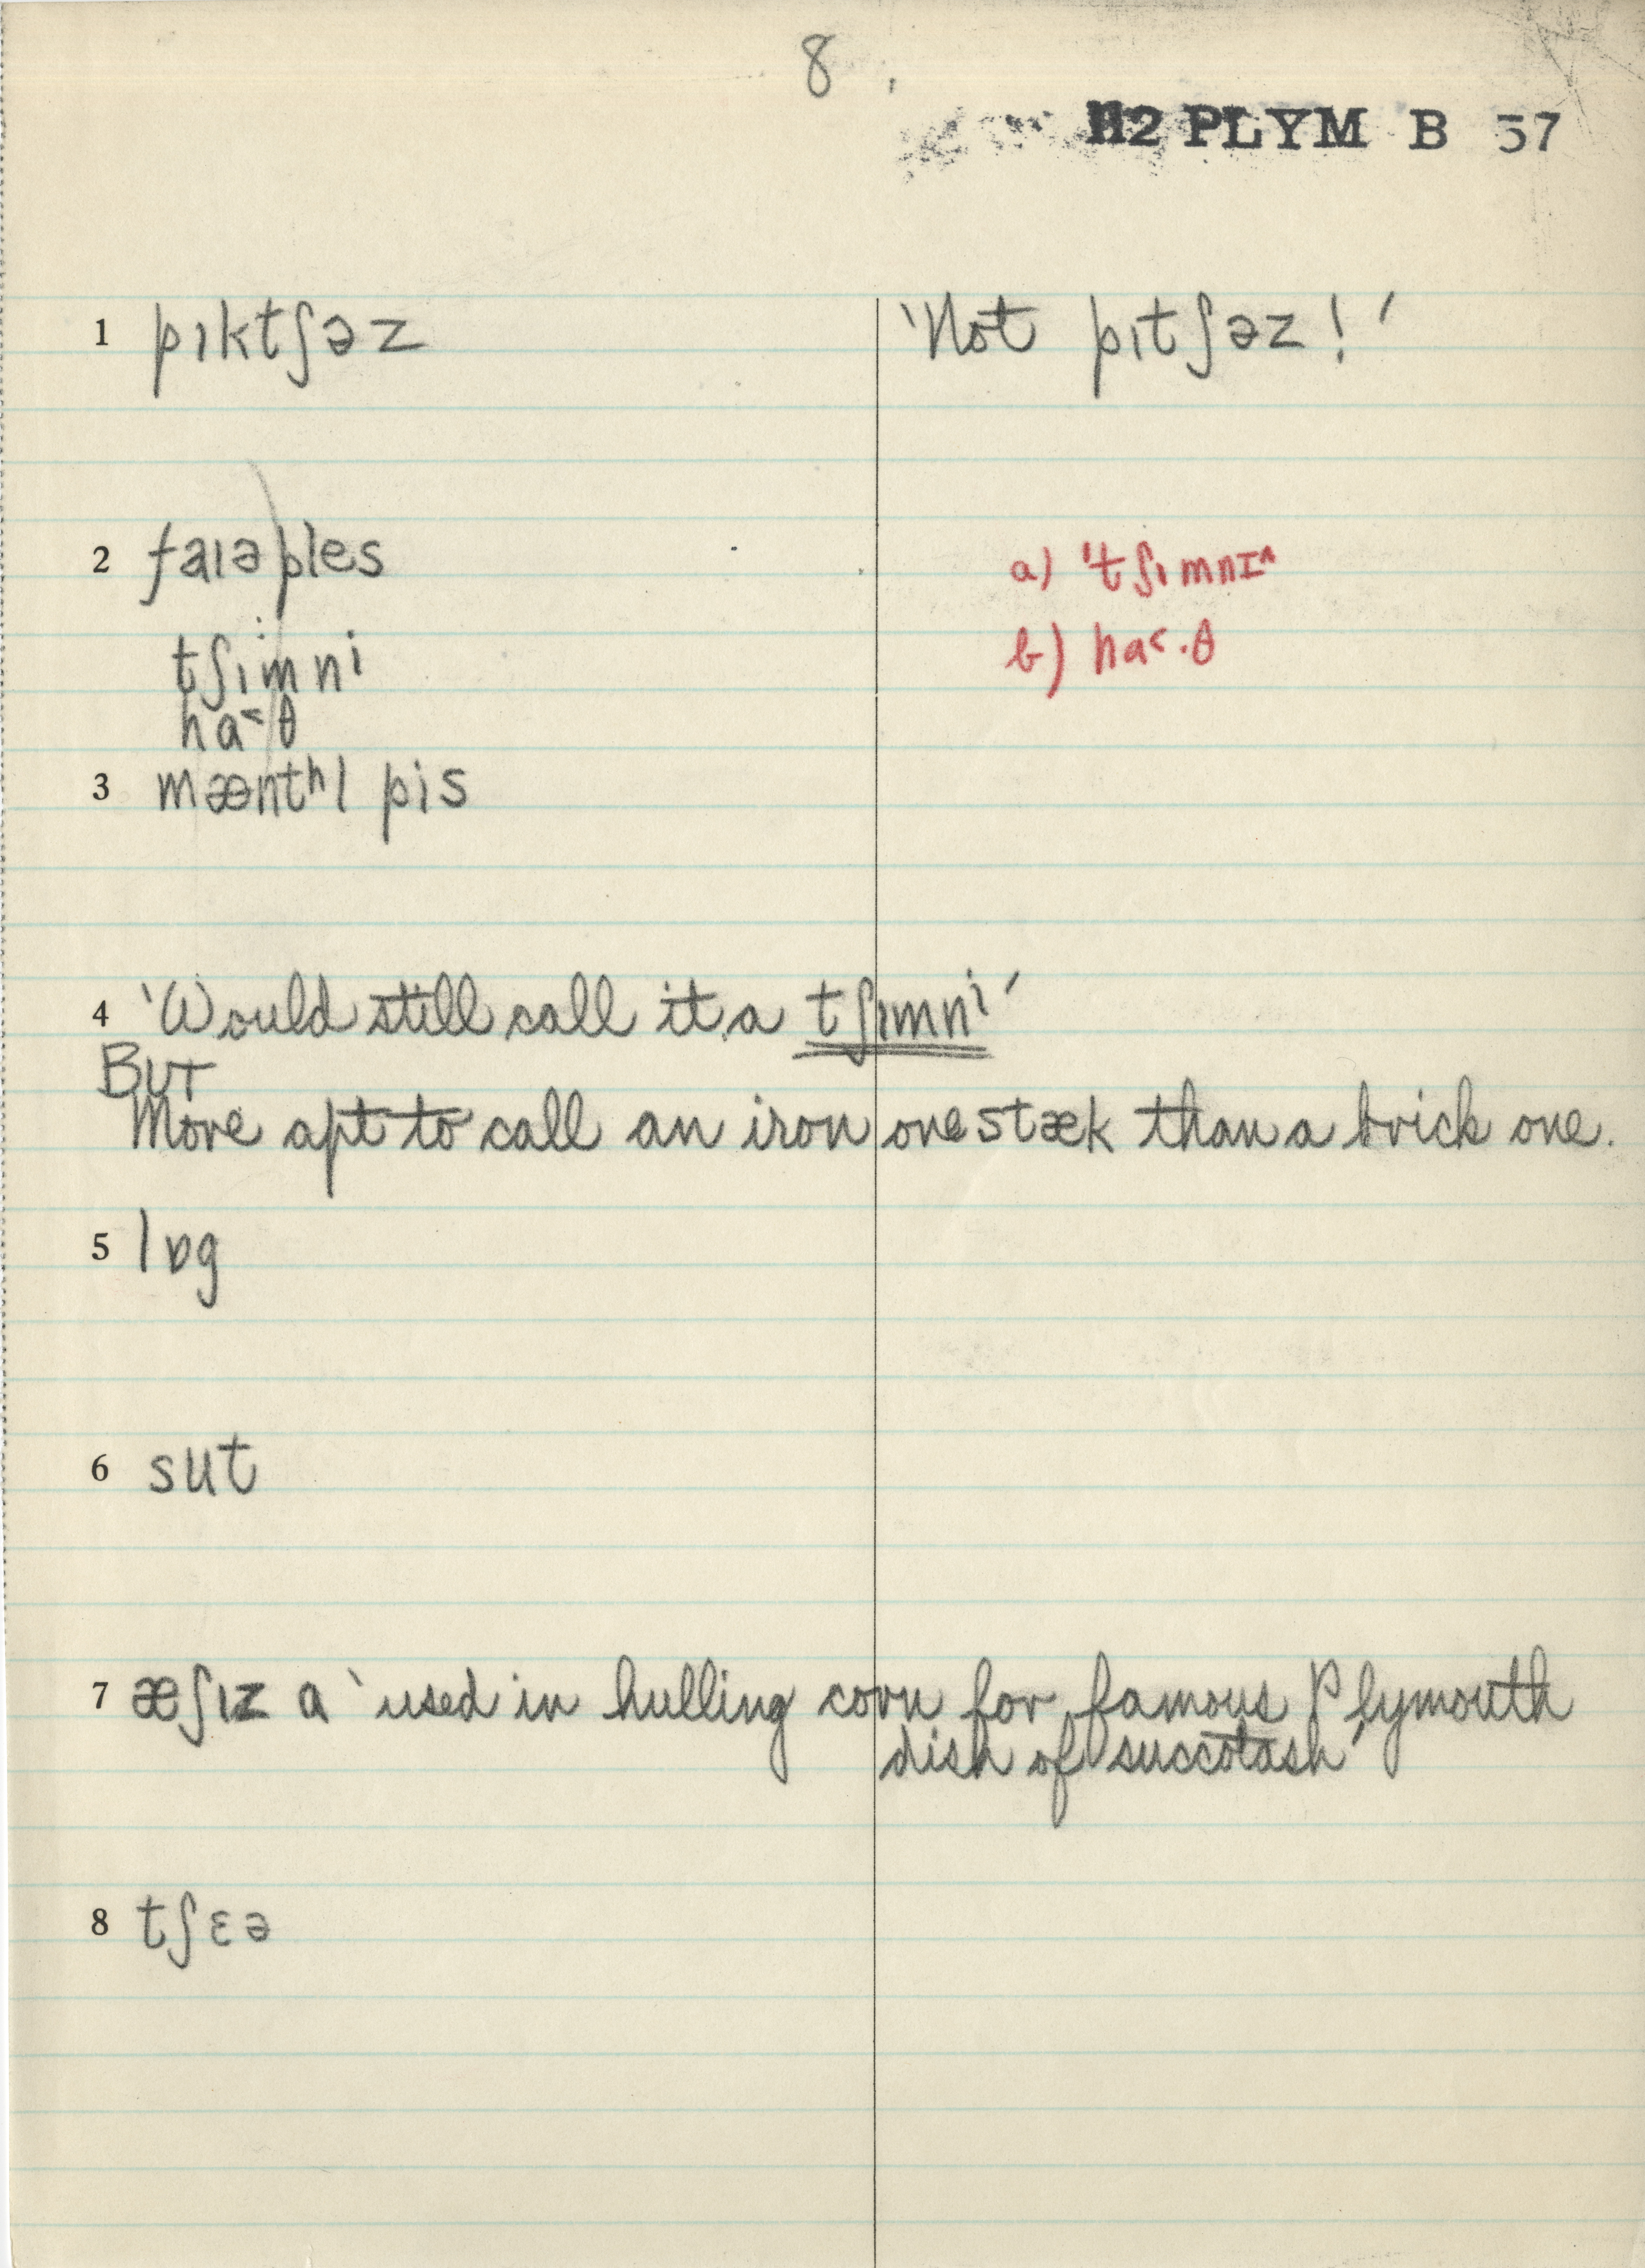 8
H2 PLYM B 57
1 pıktʃəz 'Not pıtʃəz!'
2 faıəples
a) 'tʃımnɪ^
tʃımni
b) ha<·θ
ha<θ
3 mæntʰl pis
4 'Would still call it a tʃımni'
BUT
More apt to call an iron one stæk than a brick one.
5 lɒg
6 sut
7 æʃız a 'used in hulling corn for famous Plymouth
dish of succotash'
8 tʃɛə